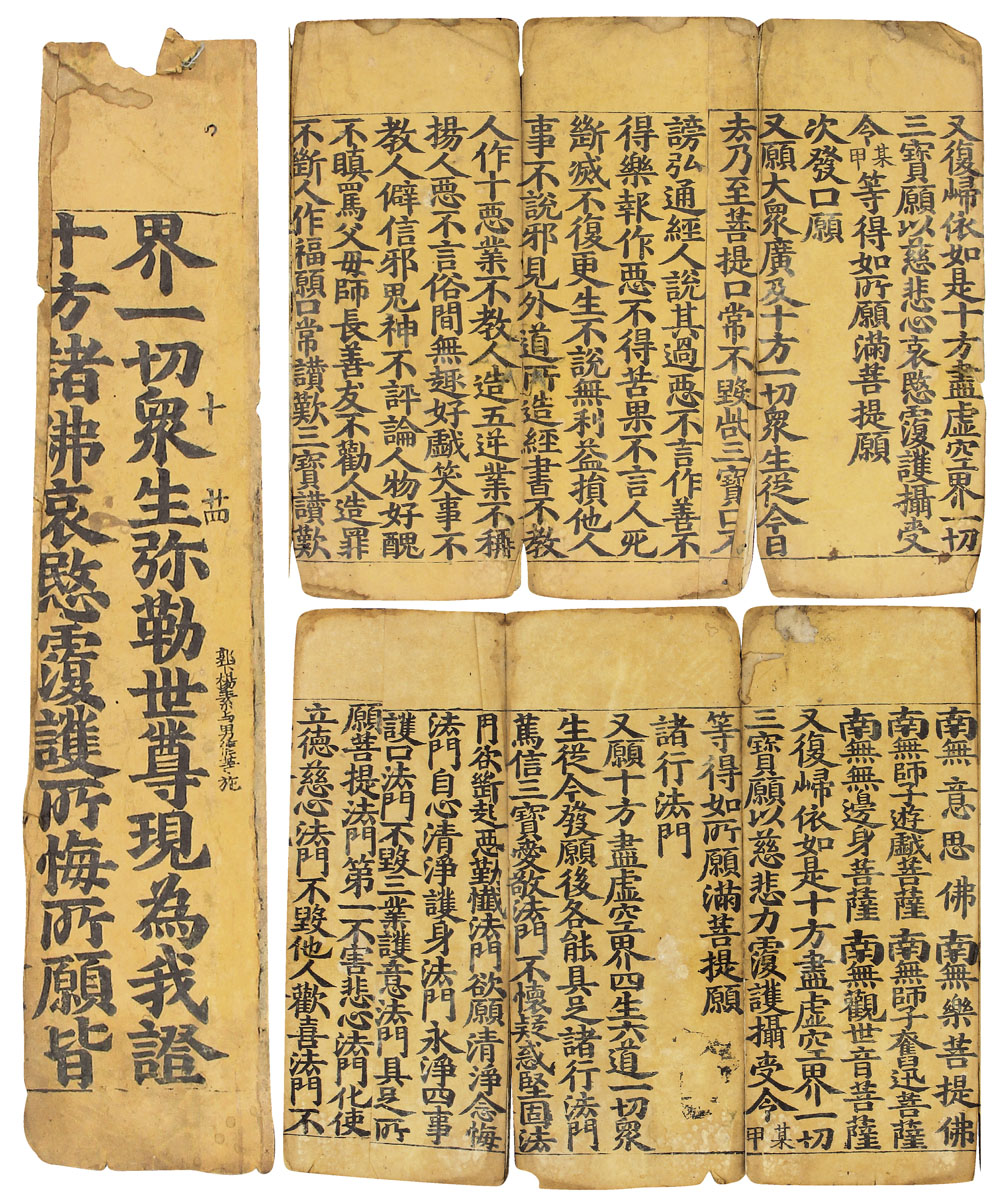 界一切衆生弥勒世尊現為我證
十方諸佛哀愍覆護所悔所願皆
十
廿四
又復歸依如是十方盡虛空界一切
三寶願以慈悲心哀愍覆護攝受
令某甲等得如所願滿菩提願
次發口願
又願大衆廣及十方一切衆生從今日
去乃至菩提口常不毀呰三寶口不
謗弘通經人說其過惡不言作善不
得樂報作惡不得苦果不言人死
斷滅不復更生不說無利益損他人
事不說邪見外道所造經書不教
人作十惡業不教人造五逆業不稱
揚人惡不言俗間無趣好戲笑事不
教人僻信邪鬼神不評論人物好醜
不瞋罵父母師長善友不勸人造罪
不斷人作福願口常讃歎三寶讃歎
南無意思佛 南無樂菩提佛
南無師子遊戲菩薩 南無師子奮迅菩薩
南無無邊身菩薩 南無觀世音菩薩
又復歸依如是十方盡虛空界一切
三寶願以慈悲力覆護攝受令某甲
等得如所願滿菩提願
諸行法門
又願十方盡虛空界四生六道一切衆
生從今發願後各能具足諸行法門
篤信三寶愛敬法門不懷疑惑堅固法
門欲斷起惡勤懺法門欲願清淨念悔
法門自心清淨護身法門永淨四事
護口法門不毀三業護意法門具足所
願菩提法門第一不害悲心法門化使
立德慈心法門不毀他人歡喜法門不